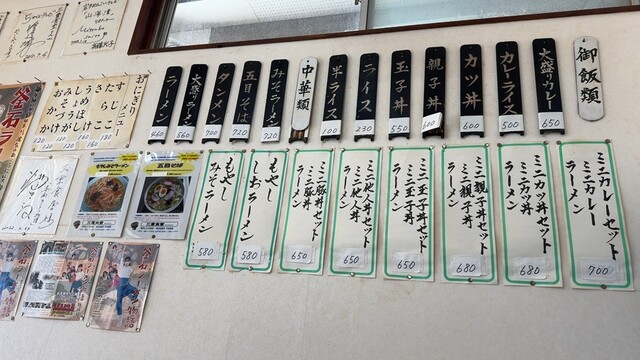 御飯類
大盛りカレー 650
カレーライス 500
カツ丼 600
親子丼 600
玉子丼 550
ライス 230
半ライス 100
中華類
みそラーメン 720
五目そば 720
タンメン 700
大盛りラーメン 560
ラーメン 460
ミニカレーセット
ミニカレー
ラーメン
700
ミニカツ丼セット
ミニカツ丼
ラーメン
680
ミニ親子丼セット
ミニ親子丼
ラーメン
680
ミニ玉子丼セット
ミニ玉子丼
ラーメン
650
ミニ他人丼セット
ミニ他人丼
ラーメン
650
ミニ豚丼セット
ミニ豚丼
ラーメン
650
もやし
しおラーメン
580
もやし
みそラーメン
580
おにぎり
メニュー
すじこ
たらこ
さけ
うめぼし
釜石ラ